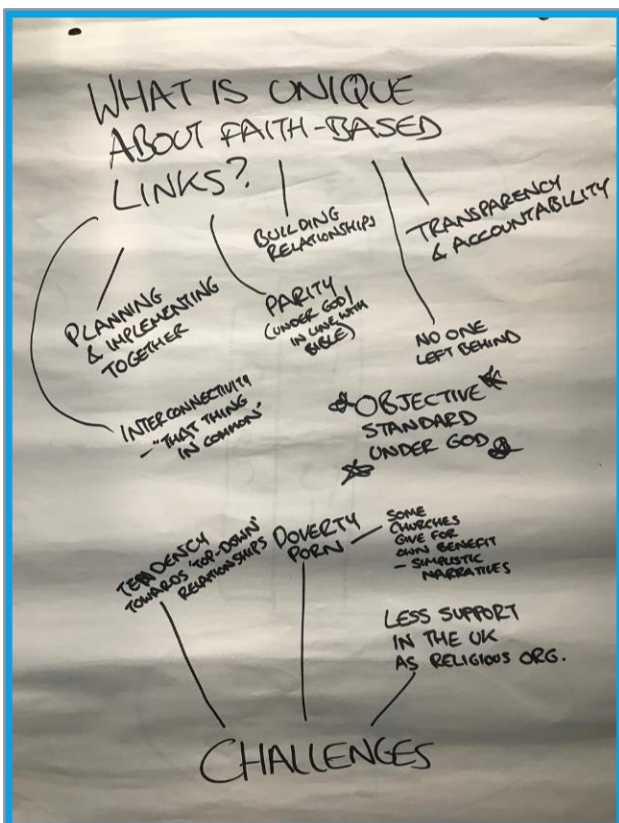 WHAT IS UNIQUE
ABOUT FAITH-BASED
LINKS?
BUILDING
RELATIONSHIPS
TRANSPARENCY
& ACCOUNTABILITY
PLANNING
& IMPLEMENTING
TOGETHER
PARITY
(UNDER GOD/
IN LINE WITH
BIBLE)
NO ONE
LEFT BEHIND
INTERCONNECTIVITY
- "THAT THING
IN COMMON"
OBJECTIVE
STANDARD
UNDER GOD
TENDENCY
TOWARDS 'TOP-DOWN'
RELATIONSHIPS
POVERTY
PORN
SOME
CHURCHES
GIVE FOR
OWN BENEFIT
- SIMPLISTIC
NARRATIVES
LESS SUPPORT
IN THE UK
AS RELIGIOUS ORG.
CHALLENGES